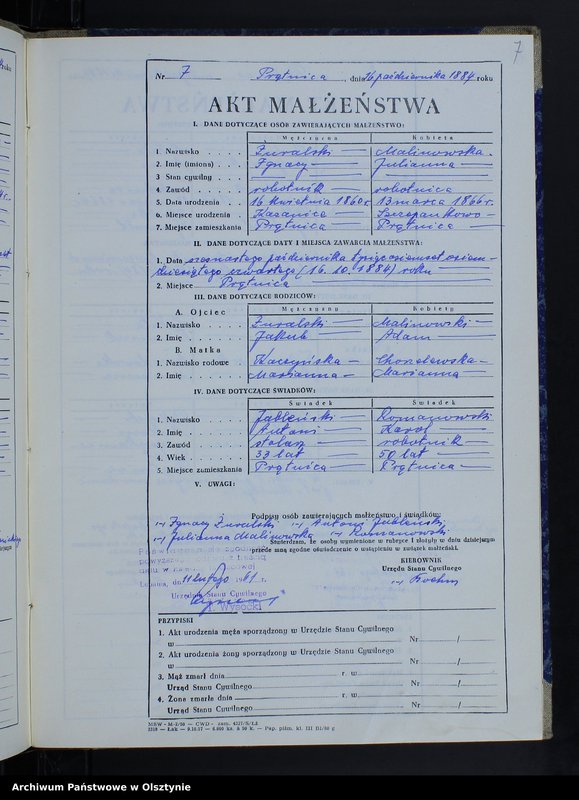 7
Nr 7 Prątnica, dnia 16 października 1884 roku
AKT MAŁŻEŃSTWA
I. DANE DOTYCZĄCE OSÓB ZAWIERAJĄCYCH MAŁŻEŃSTWO:
Mężczyzna Kobieta
1. Nazwisko Żuralski Malinowska
2. Imię (imiona) Ignacy Julianna
3. Stan cywilny
4. Zawód robotnik robotnica
5. Data urodzenia 16 kwietnia 1860 r 13 marca 1866 r.
6. Miejsce urodzenia Kazanice Szczepankowo
7. Miejsce zamieszkania Prątnica Prątnica
II. DANE DOTYCZĄCE DATY I MIEJSCA ZAWARCIA MAŁŻEŃSTWA:
1. Data szesnastego października tysiąc osiemset osiem-
dziesiątego czwartego (16. 10. 1884) roku
2. Miejsce Prątnica
III. DANE DOTYCZĄCE RODZICÓW:
A. Ojciec Mężczyzny Kobiety
1. Nazwisko Żuralski Malinowski
2. Imię Jakub Adam
B. Matka
1. Nazwisko rodowe Kaczyńska Chonelewska
2. Imię Marianna Marianna
IV. DANE DOTYCZĄCE ŚWIADKÓW:
Świadek Świadek
1. Nazwisko Jabłoński Romanowski
2. Imię Antoni Karol
3. Zawód stolarz robotnik
4. Wiek 33 lat 50 lat
5. Miejsce zamieszkania Prątnica Prątnica
V. UWAGI:
Podpisy osób zawierających małżeństwo i świadków:
Ignacy Żuralski Antoni Jabłoński
Julianna Malinowska Romanowski
Stwierdzam, że osoby wymienione w rubryce I złożyły w dniu dzisiejszym
przede mną zgodne oświadczenie o wstąpieniu w związek małżeński.
KIEROWNIK
Urzędu Stanu Cywilnego
Lubawa, dn. 11 lutego
Urzędu Stanu Cywilnego
Wysocki
PRZYPISKI
1. Akt urodzenia męża sporządzony w Urzędzie Stanu Cywilnego
w Nr /
2. Akt urodzenia żony sporządzony w Urzędzie Stanu Cywilnego
w Nr /
3. Mąż zmarł dnia r. w
Urząd Stanu Cywilnego Nr /
4. Żona zmarła dnia r. w
Urząd Stanu Cywilnego Nr /
Archiwum Państwowe w Olsztynie